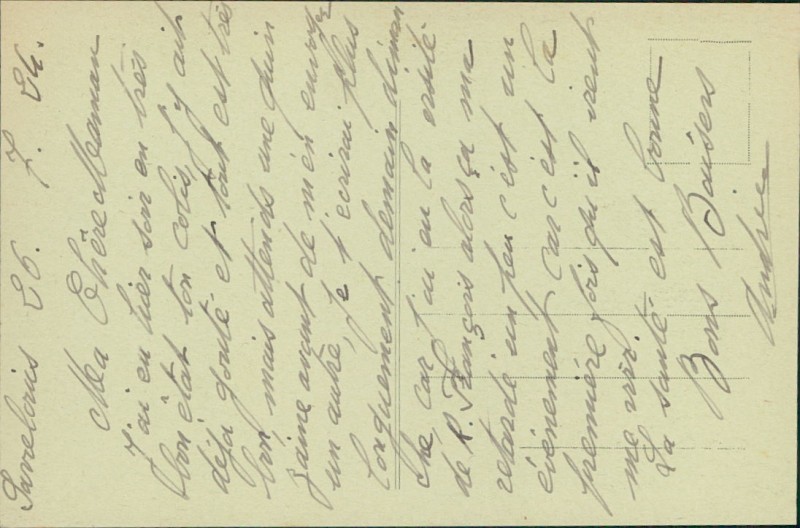 Sarrelouis 26. 7. 24.
Ma Chère Maman
J'ai eu hier soir en très
bon état ton colis, j'y ait
déjà gouté et tout est très
bon mais attends une quin
zaine avant de m'en envoyer
un autre, je t'ecrirai plus
longuement demain diman
che, car j'ai eu la visite
de R. François alors ça me
retarde un peu c'est un
évènement car c'est la
première fois qu'il vient
me voir.
La santé est bonne
Bons Baisers
André